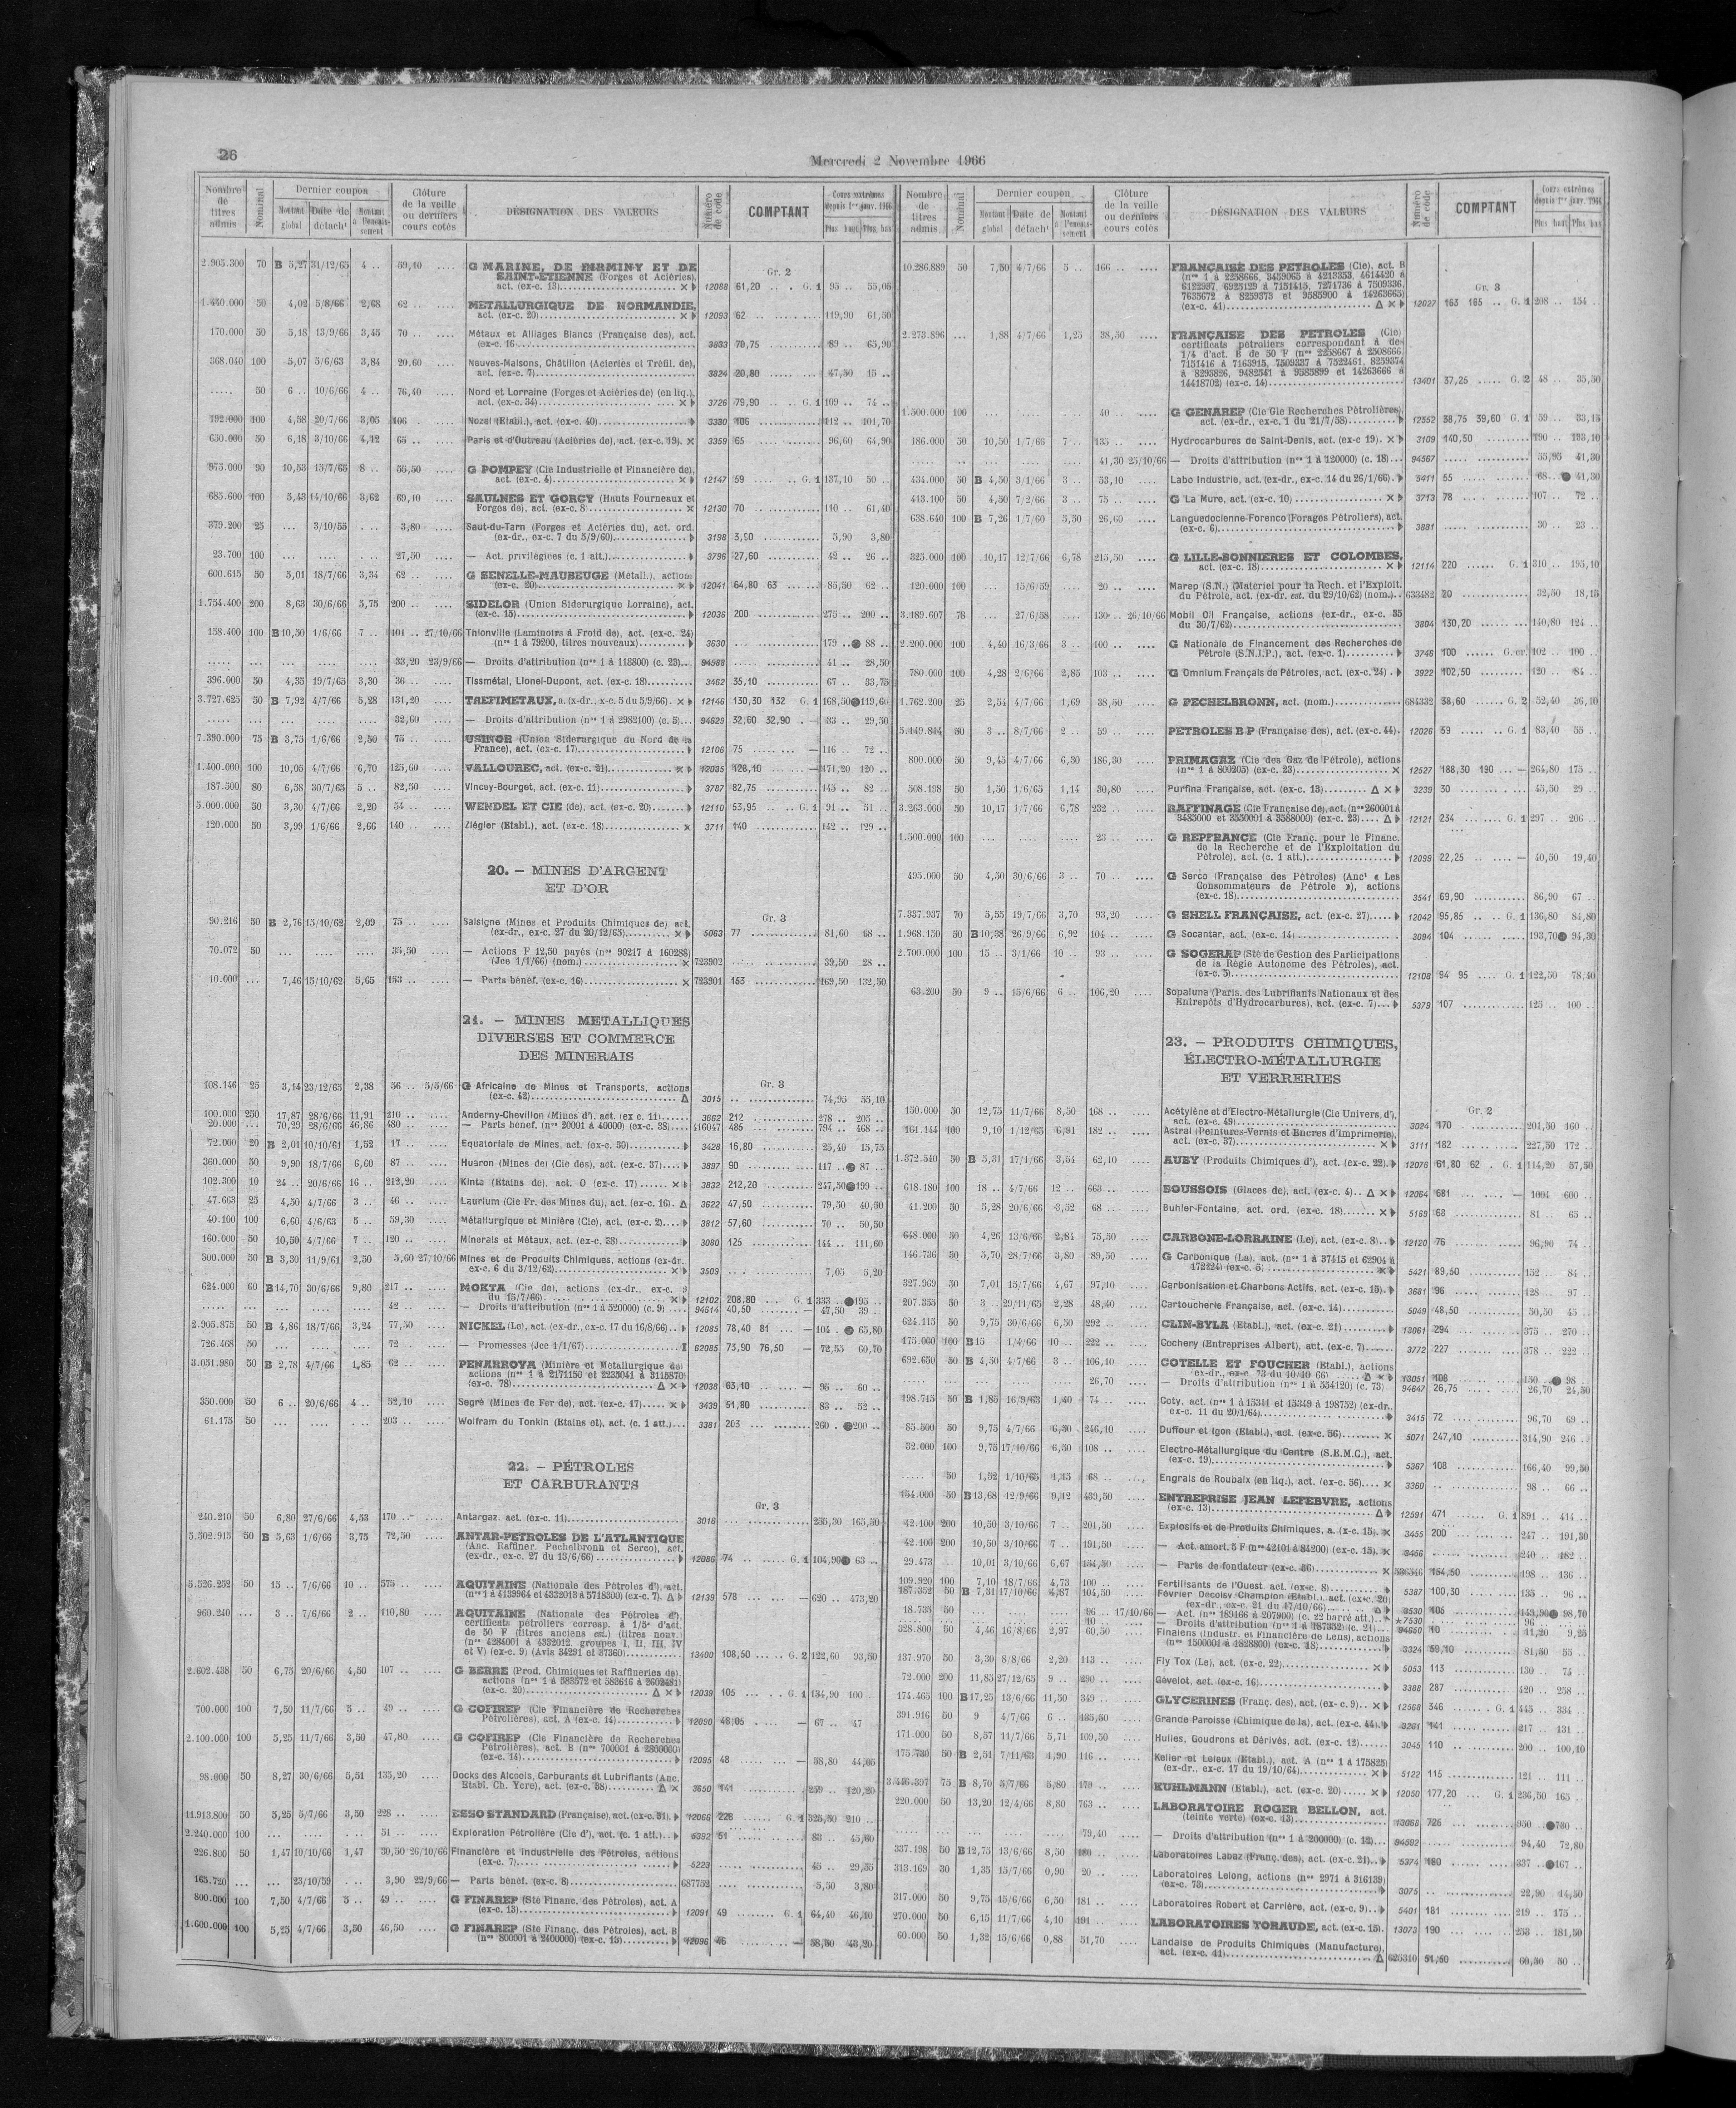 26
Mercredi 2 Novembre 1966
Nombre de titres admis
Nominal
Dernier coupon
Montant global
Date de détach¹
Clôture de la veille ou derniers cours cotés
DÉSIGNATION DES VALEURS
Numéro de code
COMPTANT
Cours extrêmes depuis 1er janv. 1966
Plus haut
Plus bas
Gr. 2
2.905.300 70 B 5,27 31/12/65 4 .. 59,10 .... G MARINE, DE FIRMINY ET DE
SAINT-ETIENNE (Forges et Aciéries),
act. (ex-c. 13) × 12088 61,20 G. 1 95 .. 55,05
1.440.000 50 4,02 5/8/66 2,68 62 .. METALLURGIQUE DE NORMANDIE,
act. (ex-c. 20) × 12093 62 119,90 61,50
170.000 50 5,18 13/9/66 3,45 70 .. Métaux et Alliages Blancs (Française des), act.
(ex-c. 16 3833 70,75 89 .. 65,90
368.040 100 5,07 5/6/63 3,84 20,60 Neuves-Maisons, Châtillon (Aciéries et Tréfil. de),
act. (ex-c. 7) 3824 20,80 47,50 15 ..
..... 50 6 .. 10/6/66 4 .. 76,40 Nord et Lorraine (Forges et Aciéries de) (en liq.),
act. (ex-c. 34) × 3726 79,90 G. 1 109 .. 74 ..
192.000 100 4,58 20/7/66 3,05 106 Nozal (Etabl.), act. (ex-c. 40) 3330 106 142 .. 101,70
630.000 50 6,18 3/10/66 4,12 65 .. Paris et d'Outreau (Aciéries de), act. (ex-c. 19). × 3359 65 96,60 64,90
875.000 90 10,53 15/7/65 8 .. 56,50 G POMPEY (Cie Industrielle et Financière de),
act. (ex-c. 4) × 12147 59 G. 1 137,10 50 ..
685.600 100 5,43 14/10/66 3,62 69,10 SAULNES ET GORCY (Hauts Fourneaux et
Forges de), act. (ex-c. 8) × 12130 70 110 .. 61,40
379.200 25 ... 3/10/55 3,80 Saut-du-Tarn (Forges et Aciéries du), act. ord.
(ex-dr., ex-c. 7 du 5/9/60) 3198 3,90 5,90 3,80
23.700 100 27,50 — Act. privilégiées (c. 1 att.) 3796 27,60 42 .. 26 ..
600.615 50 5,01 18/7/66 3,34 62 .. G SENELLE-MAUBEUGE (Métall.), actions
(ex-c. 20) × 12041 64,80 63 85,50 62 ..
1.754.400 200 8,63 30/6/66 5,75 200 .. SIDELOR (Union Siderurgique Lorraine), act.
(ex-c. 15) 12036 200 275 .. 200 ..
158.400 100 B 10,50 1/6/66 7 .. 101 .. 27/10/66 Thionville (Laminoirs à Froid de), act. (ex-c. 24)
(nos 1 à 79200, titres nouveaux) 3630 179 .. ● 88 ..
33,20 23/9/66 — Droits d'attribution (nos 1 à 118800) (c. 23) 94588 41 .. 28,50
396.000 50 4,35 19/7/65 3,30 36 .. Tissmétal, Lionel-Dupont, act. (ex-c. 18) 3462 35,10 67 .. 33,75
3.727.625 50 B 7,92 4/7/66 5,28 131,20 TREFIMETAUX, a. (x-dr., x-c. 5 du 5/9/66). × 12146 130,30 132 G. 1 168,50 ● 119,60
32,60 — Droits d'attribution (nos 1 à 2982100) (c. 5) 94629 32,60 32,90 — 33 .. 29,50
7.390.000 75 B 3,75 1/6/66 2,50 75 .. USINOR (Union Siderurgique du Nord de la
France), act. (ex-c. 17) 12106 75 — 116 .. 72 ..
1.400.000 100 10,05 4/7/66 6,70 125,60 VALLOUREC, act. (ex-c. 21) × 12035 128,10 — 171,20 120 ..
187.500 80 6,58 30/7/65 5 .. 82,50 Vincey-Bourget, act. (ex-c. 11) 3787 82,75 145 .. 82 ..
5.000.000 50 3,30 4/7/66 2,20 54 .. WENDEL ET CIE (de), act. (ex-c. 20) 12110 53,95 G. 1 91 .. 51 ..
120.000 50 3,99 1/6/66 2,66 140 .. Ziégler (Etabl.), act. (ex-c. 18) × 3711 140 142 .. 129 ..
20. — MINES D'ARGENT
ET D'OR
Gr. 3
90.216 50 B 2,76 15/10/62 2,09 75 .. Salsigne (Mines et Produits Chimiques de) act.
(ex-dr., ex-c. 27 du 20/12/65) × 5063 77 81,60 68 ..
70.072 50 35,50 — Actions F 12,50 payés (nos 90217 à 160288)
(Jce 1/1/66) (nom.) × 723902 39,50 28 ..
10.000 ... 7,46 15/10/62 5,65 153 .. — Parts bénéf. (ex-c. 16) × 723901 153 169,50 132,50
21. — MINES METALLIQUES
DIVERSES ET COMMERCE
DES MINERAIS
Gr. 3
108.146 25 3,14 23/12/65 2,38 56 .. 5/5/66 G Africaine de Mines et Transports, actions
(ex-c. 42) Δ 3015 74,95 55,10
100.000 250 17,87 28/6/66 11,91 210 .. Anderny-Chevillon (Mines d'), act. (ex c. 11) 3662 212 278 .. 205 ..
20.000 ... 70,29 28/6/66 46,86 480 .. — Parts benef. (nos 20001 à 40000) (ex-c. 38) 416047 485 794 .. 468 ..
72.000 20 B 2,01 10/10/61 1,52 17 .. Equatoriale de Mines, act. (ex-c. 30) 3428 16,80 25,40 15,75
360.000 50 9,90 18/7/66 6,60 87 .. Huaron (Mines de) (Cie des), act. (ex-c. 37) 3897 90 117 .. ● 87 ..
102.300 10 24 .. 20/6/66 16 .. 212,20 Kinta (Etains de), act. O (ex-c. 17) × 3832 212,20 247,50 ● 199 ..
47.663 25 4,50 4/7/66 3 .. 46 .. Laurium (Cie Fr. des Mines du), act. (ex-c. 16). Δ 3622 47,50 79,50 40,50
40.100 100 6,60 4/6/63 5 .. 59,30 Métallurgique et Minière (Cie), act. (ex-c. 2) 3812 57,60 70 .. 50,50
160.000 50 10,50 4/7/66 7 .. 120 .. Minerais et Métaux, act. (ex-c. 38) 3080 125 144 .. 111,60
300.000 50 B 3,30 11/9/61 2,50 5,60 27/10/66 Mines et de Produits Chimiques, actions (ex-dr.
ex-c. 6 du 3/12/62) × 3509 7,05 5,20
624.000 60 B 14,70 30/6/66 9,80 217 .. MOKTA (Cie de), actions (ex-dr., ex-c. 9
du 15/7/66) × 12102 208,80 G. 1 333 .. ● 195 ..
42 .. — Droits d'attribution (nos 1 à 520000) (c. 9) 94614 40,50 — 47,50 39 ..
2.905.875 50 B 4,86 18/7/66 3,24 77,50 NICKEL (Le), act. (ex-dr., ex-c. 17 du 16/8/66) 12085 78,40 81 — 104 .. ● 65,80
726.468 50 72 .. — Promesses (Jce 1/1/67) I 62085 73,90 76,50 — 72,55 60,70
3.051.980 50 B 2,78 4/7/66 1,85 62 .. PENARROYA (Minière et Métallurgique de)
actions (nos 1 à 2171150 et 2235041 à 3115870)
(ex-c. 78) Δ × 12038 63,10 — 95 .. 60 ..
350.000 50 6 .. 20/6/66 4 .. 52,10 Segré (Mines de Fer de), act. (ex-c. 17) × 3439 51,80 83 .. 52 ..
61.175 50 203 .. Wolfram du Tonkin (Etains et), act. (c. 1 att.) 3381 203 260 .. ● 200 ..
22. — PÉTROLES
ET CARBURANTS
Gr. 3
240.210 50 6,80 27/6/66 4,53 170 .. Antargaz. act. (ex-c. 11) 3016 235,30 165,50
5.502.915 50 B 5,63 1/6/66 3,75 72,50 ANTAR-PETROLES DE L'ATLANTIQUE
(Anc. Raffiner. Pechelbronn et Serco), act.
(ex-dr., ex-c. 27 du 13/6/66) 12086 74 G. 1 104,90 ● 63 ..
5.526.252 50 15 .. 7/6/66 10 .. 575 .. AQUITAINE (Nationale des Pétroles d'), act.
(nos 1 à 4139964 et 4332013 à 5718300) (ex-c. 7). Δ 12139 578 — 620 .. 473,20
960.240 ... 3 .. 7/6/66 2 .. 110,80 AQUITAINE (Nationale des Pétroles d'),
certificats pétroliers corresp. à 1/5e d'act.
de 50 F (titres anciens est.) (titres nouv.)
(nos 4284001 à 4332012, groupes I, II, III, IV
et V) (ex-c. 9) (Avis 34291 et 37360) 13400 108,50 G. 2 122,60 93,50
2.602.438 50 6,75 20/6/66 4,50 107 .. G BERRE (Prod. Chimiques et Raffineries de),
actions (nos 1 à 583572 et 583616 à 2602481)
(ex-c. 20) Δ × 12039 105 G. 1 134,90 100 ..
700.000 100 7,50 11/7/66 5 .. 49 .. G COFIREP (Cie Financière de Recherches
Pétrolières), act. A (ex-c. 14) 12090 48,05 — 67 .. 47
2.100.000 100 5,25 11/7/66 3,50 47,80 G COFIREP (Cie Financière de Recherches
Pétrolières), act. B (nos 700001 à 2800000)
(ex-c. 14) 12095 48 — 58,80 44,05
98.000 50 8,27 30/6/66 5,51 135,20 Docks des Alcools, Carburants et Lubrifiants (Anc.
Etabl. Ch. Ycre), act. (ex-c. 38) Δ × 3850 141 259 .. 120,20
11.913.800 50 5,25 5/7/66 3,50 228 .. ESSO STANDARD (Française), act. (ex-c. 31) 12066 228 G. 1 325,50 210 ..
2.240.000 100 51 .. Exploration Pétrolière (Cie d'), act. (c. 1 att.) 5392 51 83 .. 45,60
226.800 50 1,47 10/10/66 1,47 30,50 26/10/66 Financière et Industrielle des Pétroles, actions
(ex-c. 7) 5223 45 .. 29,55
165.720 ... 23/10/59 3,90 22/9/66 — Parts bénéf. (ex-c. 8) 687752 5,50 3,80
800.000 100 7,50 4/7/66 5 .. 49 .. G FINAREP (Sté Financ. des Pétroles), act. A
(ex-c. 13) 12091 49 G. 1 64,40 46,10
1.600.000 100 5,25 4/7/66 3,50 46,50 G FINAREP (Sté Financ. des Pétroles), act. B
(nos 800001 à 2400000) (ex-c. 13) 12096 46 — 58,80 43,20
Nombre de titres admis
Nominal
Dernier coupon
Montant global
Date de détach¹
Clôture de la veille ou derniers cours cotés
DÉSIGNATION DES VALEURS
Numéro de code
COMPTANT
Cours extrêmes depuis 1er janv. 1966
Plus haut
Plus bas
Gr. 3
10.286.889 50 7,50 4/7/66 5 .. 166 .. FRANÇAISE DES PETROLES (Cie), act. B
(nos 1 à 2258666, 3459065 à 4213353, 4614420 à
6122997, 6925129 à 7151415, 7271736 à 7509336,
7635672 à 8259373 et 9585900 à 14263665)
(ex-c. 41) Δ × 12027 163 165 G. 1 208 .. 154 ..
2.273.896 ... 1,88 4/7/66 1,25 38,50 FRANÇAISE DES PETROLES (Cie)
certificats pétroliers correspondant à de
1/4 d'act. B de 50 F (nos 2258667 à 2508666,
7151416 à 7163915, 7509337 à 7522461, 8259374
à 8293826, 9482541 à 9583899 et 14263666 à
14418702) (ex-c. 14) 13401 37,25 G. 2 48 .. 35,50
1.500.000 100 40 .. G GENAREP (Cie Gle Recherches Pétrolières)
act. (ex-dr., ex-c. 1 du 21/7/58) 12552 38,75 39,60 G. 1 59 .. 33,15
186.000 50 10,50 1/7/66 7 .. 135 .. Hydrocarbures de Saint-Denis, act. (ex-c 19). × 3109 140,50 190 .. 133,10
41,30 25/10/66 — Droits d'attribution (nos 1 à 120000) (c. 18) 94567 55,95 41,30
434.000 50 B 4,50 3/1/66 3 .. 53,10 Labo Industrie, act. (ex-dr., ex-c. 14 du 26/1/66) 3411 55 68 .. ● 41,30
413.100 50 4,50 7/2/66 3 .. 75 .. G La Mure, act. (ex-c. 10) × 3713 78 107 .. 72 ..
638.640 100 B 7,26 1/7/60 5,50 26,60 Languedocienne-Forenco (Forages Pétroliers), act.
(ex-c. 6) 3881 30 .. 23 ..
325.000 100 10,17 12/7/66 6,78 215,50 G LILLE-BONNIERES ET COLOMBES,
act. (ex-c. 18) × 12114 220 G. 1 310 .. 195,10
120.000 100 15/6/59 20 .. Marep (S.N.) (Matériel pour la Rech. et l'Exploit.
du Pétrole, act. (ex-dr. est. du 29/10/62) (nom.) 633482 20 32,50 18,15
3.189.607 78 27/6/58 130 .. 26/10/66 Mobil Oil Française, actions (ex-dr., ex-c. 35
du 30/7/62) 3804 130,20 140,80 124 ..
2.200.000 100 4,40 16/3/66 3 .. 100 .. G Nationale de Financement des Recherches de
Pétrole (S.N.I.P.), act. (ex-c. 1) 3746 100 G. cr. 102 .. 100 ..
780.000 100 4,28 2/6/66 2,85 103 .. G Omnium Français de Pétroles, act. (ex-c. 24) 3922 102,50 120 .. 84 ..
1.762.200 25 2,54 4/7/66 1,69 38,50 G PECHELBRONN, act. (nom.) 684332 38,60 G. 2 52,40 36,10
5.149.844 50 3 .. 8/7/66 2 .. 59 .. PETROLES B P (Française des), act. (ex-c. 44). 12026 59 G. 1 83,40 55 ..
800.000 50 9,45 4/7/66 6,30 186,30 PRIMAGAZ (Cie des Gaz de Pétrole), actions
(nos 1 à 800205) (ex-c. 23) × 12527 188,30 190 — 264,80 175 ..
508.198 50 1,50 1/6/65 1,14 30,80 Purfina Française, act. (ex-c. 13) Δ × 3239 30 45,50 29 ..
3.263.000 50 10,17 1/7/66 6,78 232 .. RAFFINAGE (Cie Française de), act. (nos 260001 à
3485000 et 3550001 à 3588000) (ex-c. 23) Δ 12121 234 G. 1 297 .. 206 ..
1.500.000 100 23 .. G REPFRANCE (Cie Franç. pour le Financ.
de la Recherche et de l'Exploitation du
Pétrole), act. (c. 1 att.) 12099 22,25 — 40,50 19,40
495.000 50 4,50 30/6/66 3 .. 70 .. G Serco (Française des Pétroles) (Anct « Les
Consommateurs de Pétrole »), actions
(ex-c. 18) 3541 69,90 86,90 67 ..
7.337.937 70 5,55 19/7/66 3,70 93,20 G SHELL FRANÇAISE, act. (ex-c. 27) 12042 95,85 G. 1 136,80 84,80
1.968.150 50 B 10,38 26/9/66 6,92 104 .. G Socantar, act. (ex-c. 14) 3094 104 193,70 ● 94,30
2.700.000 100 15 .. 3/1/66 10 .. 93 .. G SOGERAP (Sté de Gestion des Participations
de la Régie Autonome des Pétroles), act.
(ex-c. 5) 12108 94 95 G. 1 122,50 78,40
63.200 50 9 .. 15/6/66 6 .. 106,20 Sopaluna (Paris. des Lubrifiants Nationaux et des
Entrepôts d'Hydrocarbures), act. (ex-c. 7) 5379 107 125 .. 100 ..
23. — PRODUITS CHIMIQUES,
ÉLECTRO-MÉTALLURGIE
ET VERRERIES
Gr. 2
150.000 50 12,75 11/7/66 8,50 168 .. Acétylène et d'Electro-Métallurgie (Cie Univers. d'),
act. (ex-c. 49) 3024 170 201,50 160 ..
161.144 100 9,10 1/12/65 6,91 182 .. Astral (Peintures-Vernis et Encres d'Imprimerie),
act. (ex-c. 37) × 3111 182 227,50 172 ..
1.372.540 50 B 5,31 17/1/66 3,54 62,10 AUBY (Produits Chimiques d'), act. (ex-c. 22). 12076 61,80 62 G. 1 114,20 57,50
618.180 100 18 .. 4/7/66 12 .. 663 .. BOUSSOIS (Glaces de), act. (ex-c. 4) Δ × 12064 681 — 1004 600 ..
41.200 50 5,28 20/6/66 3,52 68 .. Buhler-Fontaine, act. ord. (ex-c. 18) × 5169 68 81 .. 65 ..
648.000 50 4,26 13/6/66 2,84 75,50 CARBONE-LORRAINE (Le), act. (ex-c. 8) 12120 76 96,90 74 ..
146.736 50 5,70 28/7/66 3,80 89,50 G Carbonique (La), act. (nos 1 à 37415 et 62904 à
172224) (ex-c. 5) × 5421 89,50 152 .. 84 ..
327.969 50 7,01 15/7/66 4,67 97,10 Carbonisation et Charbons Actifs, act. (ex-c. 15). 3681 96 128 .. 97 ..
207.355 50 3 .. 29/11/65 2,28 48,40 Cartoucherie Française, act. (ex-c. 14) 5049 48,50 50,50 45 ..
624.115 50 9,75 30/6/66 6,50 292 .. CLIN-BYLA (Etabl.), act. (ex-c. 21) 13061 294 375 .. 270 ..
175.000 100 B 15 1/4/66 10 .. 222 .. Cochery (Entreprises Albert), act. (ex-c. 7) 3772 227 378 .. 222 ..
692.650 50 B 4,50 4/7/66 3 .. 106,10 COTELLE ET FOUCHER (Etabl.), actions
ex-dr., ex-c. 73 du 10/10 66) Δ × 13051 108 150 .. ● 98 ..
26,70 — Droits d'attribution (nos 1 à 554120) (c. 73) 94647 26,75 26,70 24,50
198.715 50 B 1,85 16/9/63 1,40 74 .. Coty, act. (nos 1 à 15344 et 15349 à 198752) (ex-dr.,
ex-c. 11 du 20/1/64) 3415 72 96,70 69 ..
85.500 50 9,75 4/7/66 6,50 246,10 Duffour et Igon (Etabl.), act. (ex-c. 56) × 5071 247,10 314,90 246 ..
52.000 100 9,75 17/10/66 6,50 108 .. Electro-Métallurgique du Centre (S.E.M.C.), act.
(ex-c. 19) 5367 108 166,40 99,50
50 1,52 1/10/65 1,15 68 .. Engrais de Roubaix (en liq.), act. (ex-c. 56) × 3360 98 .. 66 ..
154.000 50 B 13,68 12/9/66 9,12 439,50 ENTREPRISE JEAN LEFEBVRE, actions
(ex-c. 13) Δ 12591 471 G. 1 891 .. 414 ..
42.100 200 10,50 3/10/66 7 .. 201,50 Explosifs et de Produits Chimiques, a. (x-c. 15). × 3455 200 247 .. 191,30
42.100 200 10,50 3/10/66 7 .. 191,50 — Act. amort. 5 F (nos 42101 à 84200) (ex-c. 15). × 3456 240 .. 182 ..
29.473 10,01 3/10/66 6,67 154,50 — Parts de fondateur (ex-c. 86) × 536546 154,50 198 .. 136 ..
109.920 100 7,10 18/7/66 4,73 100 .. Fertilisants de l'Ouest act. (ex-c. 8) 5387 100,30 135 .. 96 ..
187.352 50 B 7,31 17/10/66 4,87 104,50 Février Decoisy Champion (Etabl.), act. (ex-c. 20)
(ex-dr., ex-c. 21 du 17/10/66) Δ 3530 105 143,30 ● 98,70
18.735 50 96 .. 17/10/66 — Act. (nos 189166 à 207900) (c. 22 barré att.) ★7530 96
10 .. — Droits d'attribution (nos 1 à 187352) (c. 21) 94650 10 11,20 9,25
328.800 50 4,46 16/8/66 2,97 60,50 Finalens (Industr. et Financière de Lens), actions
(nos 1500001 à 1828800) (ex-c. 18) 3324 59,10 81,50 55 ..
137.970 50 3,30 8/8/66 2,20 113 .. Fly Tox (Le), act. (ex-c. 22) × 5053 113 130 .. 75 ..
72.000 200 11,85 27/12/65 9 .. 290 .. Gévelot, act. (ex-c. 16) 3388 287 420 .. 258 ..
174.465 100 B 17,25 13/6/66 11,50 349 .. GLYCERINES (Franç. des), act. (ex-c. 9) × 12568 346 G. 1 445 .. 334 ..
391.916 50 9 4/7/66 6 .. 135,50 Grande Paroisse (Chimique de la), act. (ex-c. 44). 3261 141 217 .. 131 ..
171.000 50 8,57 11/7/66 5,71 109,50 Huiles, Goudrons et Dérivés, act. (ex-c. 12) 3045 110 200 .. 100,10
175.730 50 B 2,51 7/11/63 1,90 116 .. Keller et Leleux (Etabl.), act. A (nos 1 à 175828)
(ex-dr., ex-c. 17 du 19/10/64) × 5122 115 121 .. 111 ..
3.446.397 75 B 8,70 5/7/66 5,80 179 .. KUHLMANN (Etabl.), act. (ex-c. 20) × 12050 177,20 G. 1 236,50 165 ..
220.000 50 13,20 12/4/66 8,80 763 .. LABORATOIRE ROGER BELLON, act.
(teinte verte) (ex-c. 13) 13068 726 950 .. ● 730 ..
79,40 — Droits d'attribution (nos 1 à 200000) (c. 12) 94592 94,40 72,80
337.198 50 B 12,75 13/6/66 8,50 180 .. Laboratoires Labaz (Franç. des), act. (ex-c. 21) 5374 180 337 .. ● 167 ..
313.169 30 1,35 15/7/66 0,90 20 .. Laboratoires Lelong, actions (nos 2971 à 316139)
(ex-c. 73) 3075 22,90 14,50
317.000 50 9,75 15/6/66 6,50 181 .. Laboratoires Robert et Carrière, act. (ex-c. 9) 5401 181 219 .. 175 ..
270.000 50 6,15 11/7/66 4,10 191 .. LABORATOIRES TORAUDE, act. (ex-c. 15). 13073 190 253 .. 181,50
60.000 50 1,32 15/6/66 0,88 51,70 Landaise de Produits Chimiques (Manufacture),
act. (ex-c. 41) Δ 625310 51,60 60,30 50 ..